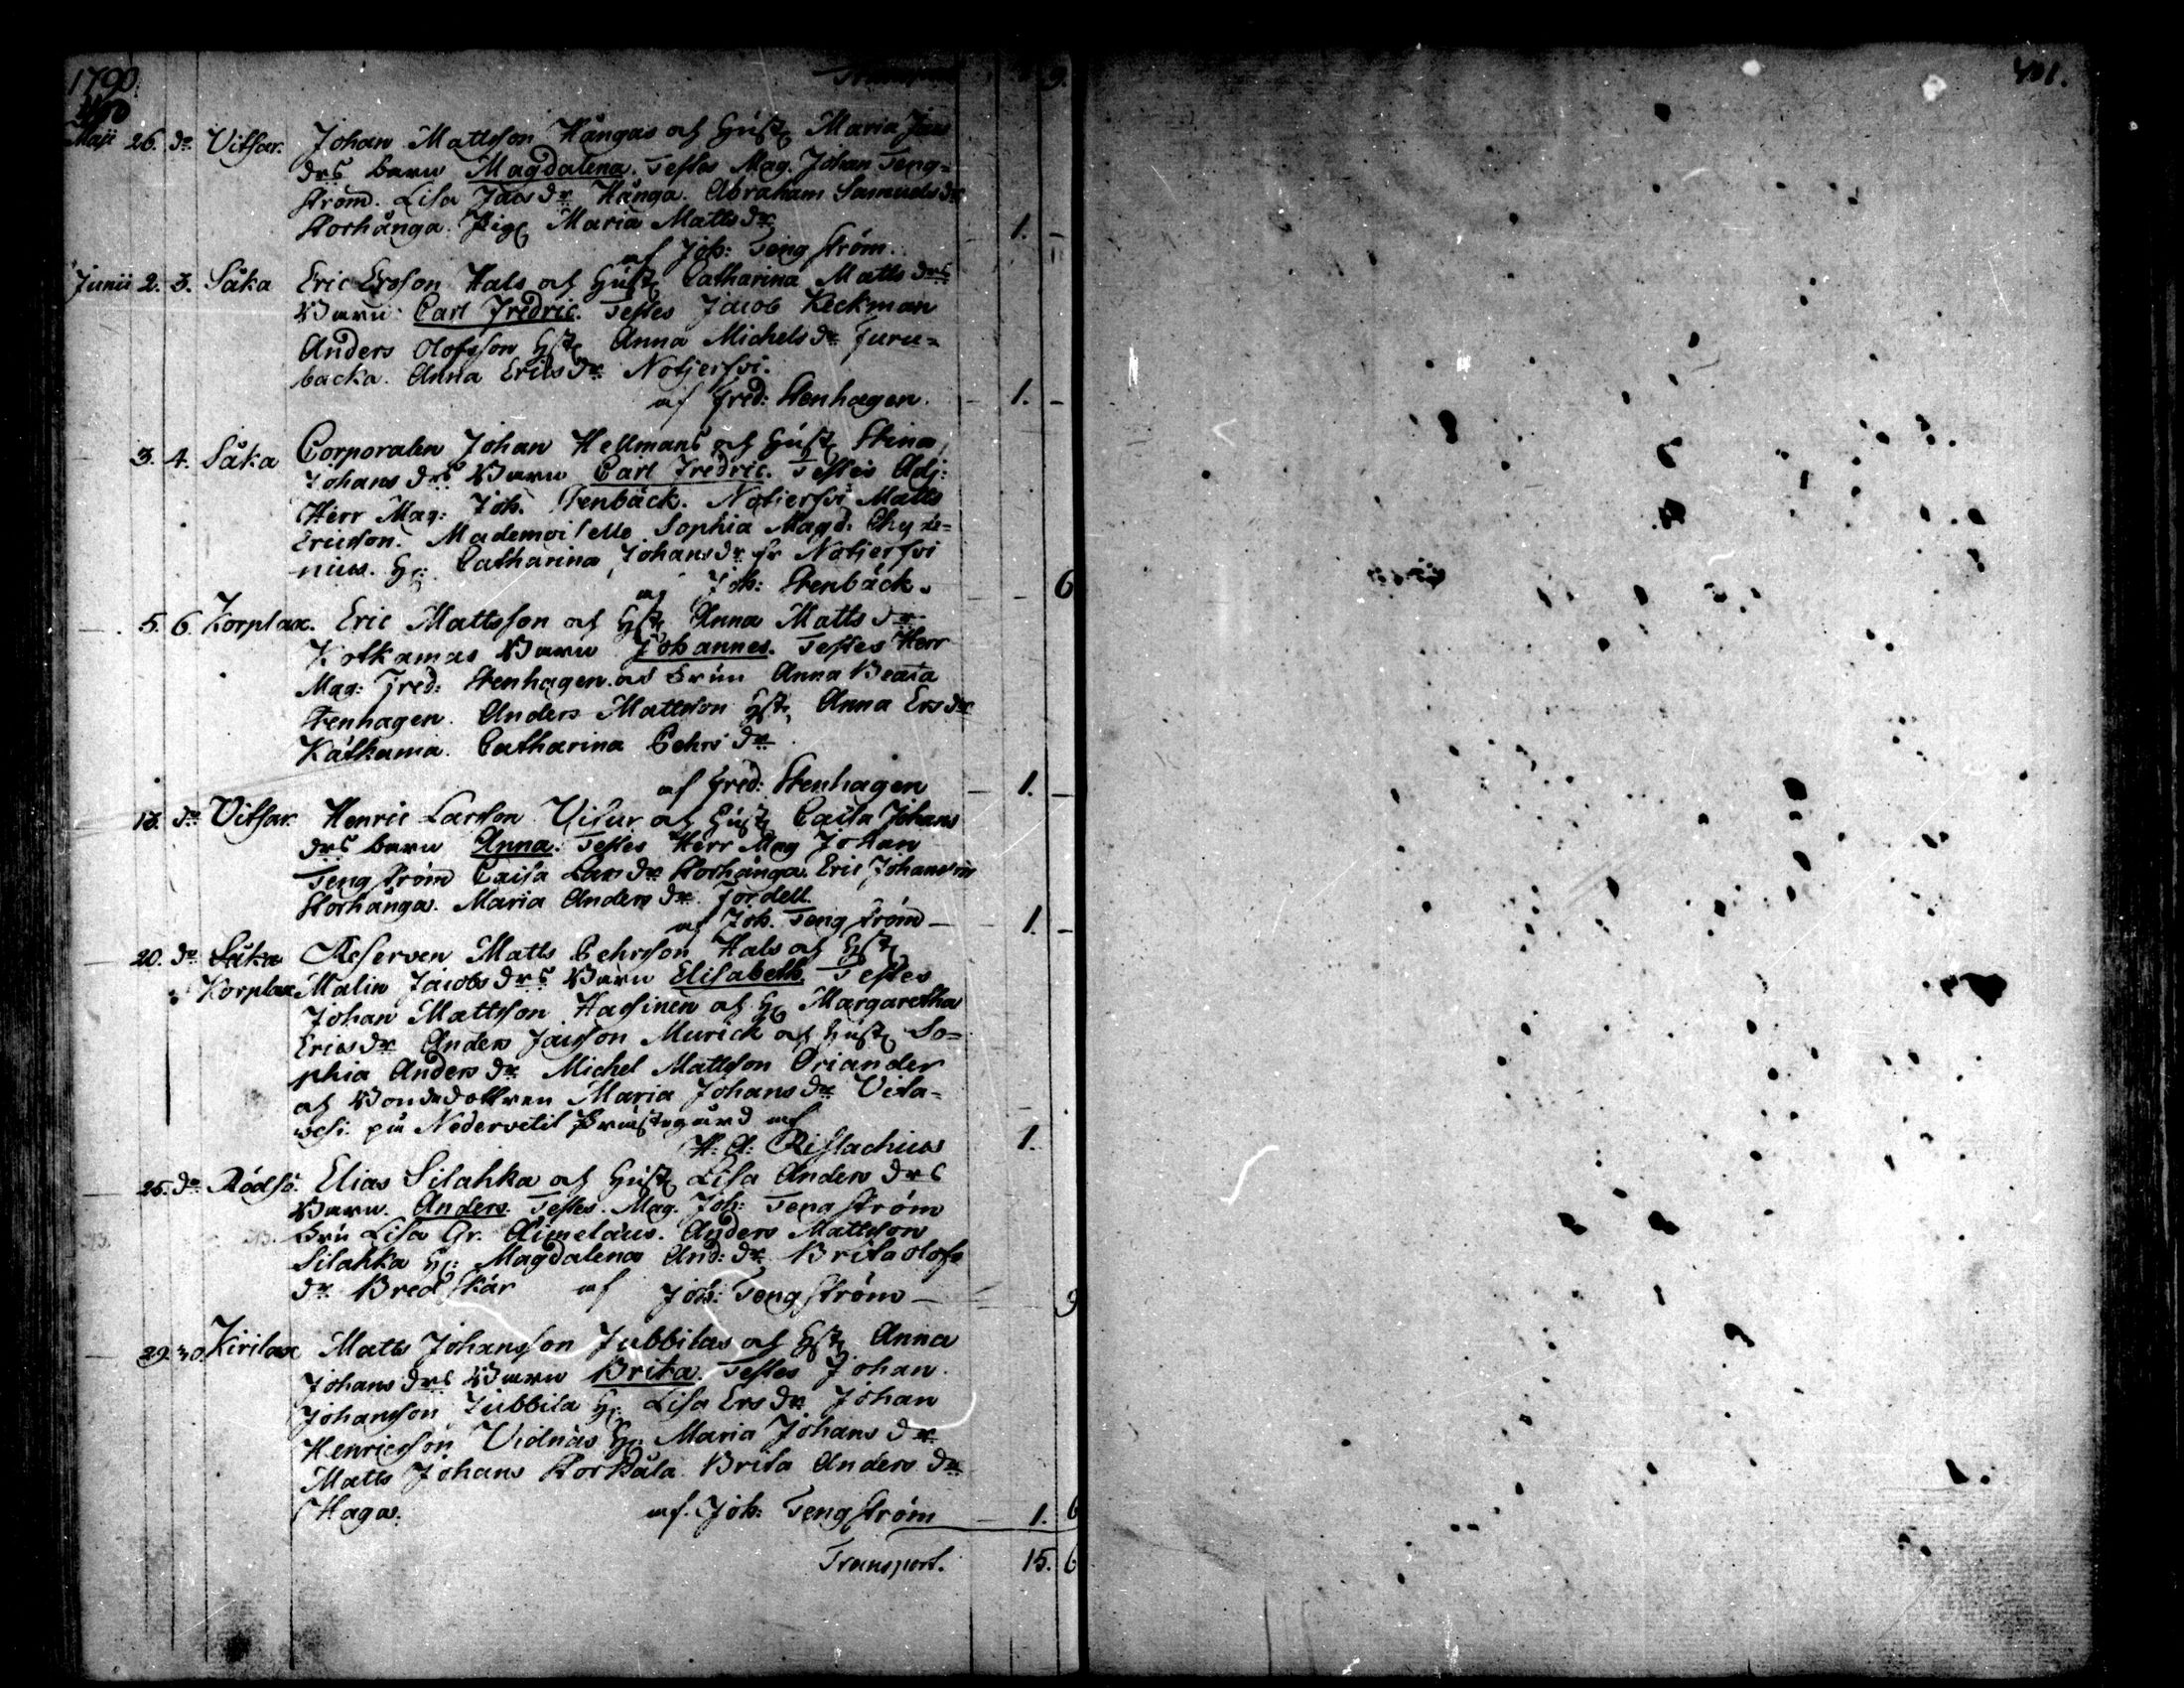 1790. Transport 9.
400 401.
Maji 26. do Vitsar. Johan Mattsson Hångas och Hustr Maria Jacs
drs barn Magdalena. Testes Mag. Johan Teng=
ström. Lisa Jacsdr Hånga. Abraham Samuelsdr
Storhånga. Pig Maria Mattsdr
af Joh: Tengström. 1. –
Junii 2. 3. Såka Eric Ersson Hals och Hustr Catharina Mattsdrs
Barn: Carl Fredric. Testes Jacob Keckman
Anders Olofsson Hstr Anna Michelsdr Furu=
backa. Anna Ericsdr Notjerfvi.
af Fred: Stenhagen. – 1. –
3. 4. Såka Corporalen Johan Hellmans och Hustr Stina
Johansdrs Barn Carl Fredric. Testes Adj:
Herr Mag: Joh. Stenbäck. Notjerfvi Matts
Ericsson. Mademoiselle Sophia Magd: Chyde=
nius. H: Catharina Johansdr fr Notjerfvi
af Joh: Stenbäck. – 6
5. 6. Korplax. Eric Mattsson och Hstr Anna Mattsdr
Kotkamas Barn Johannes. Testes Herr
Mag: Fred: Stenhagen och Frun Anna Beata
Stenhagen. Anders Mattsson Hstr Anna Ersdr
Kåtkama. Catharina Pehrsdr
af Fred: Stenhagen – 1. –
13. do Vitsar. Henric Larsson Visur och Hustr Caisa Johans
drs barn Anna. Testes Herr Mag Johan
Tengström Caisa Larsdr Storhånga. Eric Johansson
Storhånga. Maria Andersdr Fordell.
af Joh. Tengström – 1. –
20. do Såka Reserven Matts Pehrsson Hals och Hstr
Korplax Malin Jacobsdrs Barn Elisabeth. Testes
Johan Mattsson Hassinen och H Margaretha
Ericsdr Anders Jacsson Murick och Hustr So=
phia Andersdr Michel Mattsson Oriander
och Bondedottren Maria Johansdr Vita=
vesi. på Nedervetil Prästegård af
H: A: Ristlachius 1.
25. do Rödsö. Elias Silahka och Hustr Lisa Andersdrs
Barn. Anders. Testes. Mag. Joh: Tengström
Fru Lisa Gr. Aimelæus. Anders Mattsson
Silahka H: Magdalena And:dr Brita Olofs
dr Bredskär af Joh: Tengström – 9
29. 30. Kirilax Matts Johansson Jubbilas och Hstr Anna
Johansdrs Barn Brita. Testes Johan
Johansson Jubbila H: Lisa Ersdr Johan
Henricsson Vidnäs H: Maria Johansdr
Matts Johans Korkåla. Brita Andersdr
Haga. af. Joh: Tengström – 1. 6
Transport. 15. 6